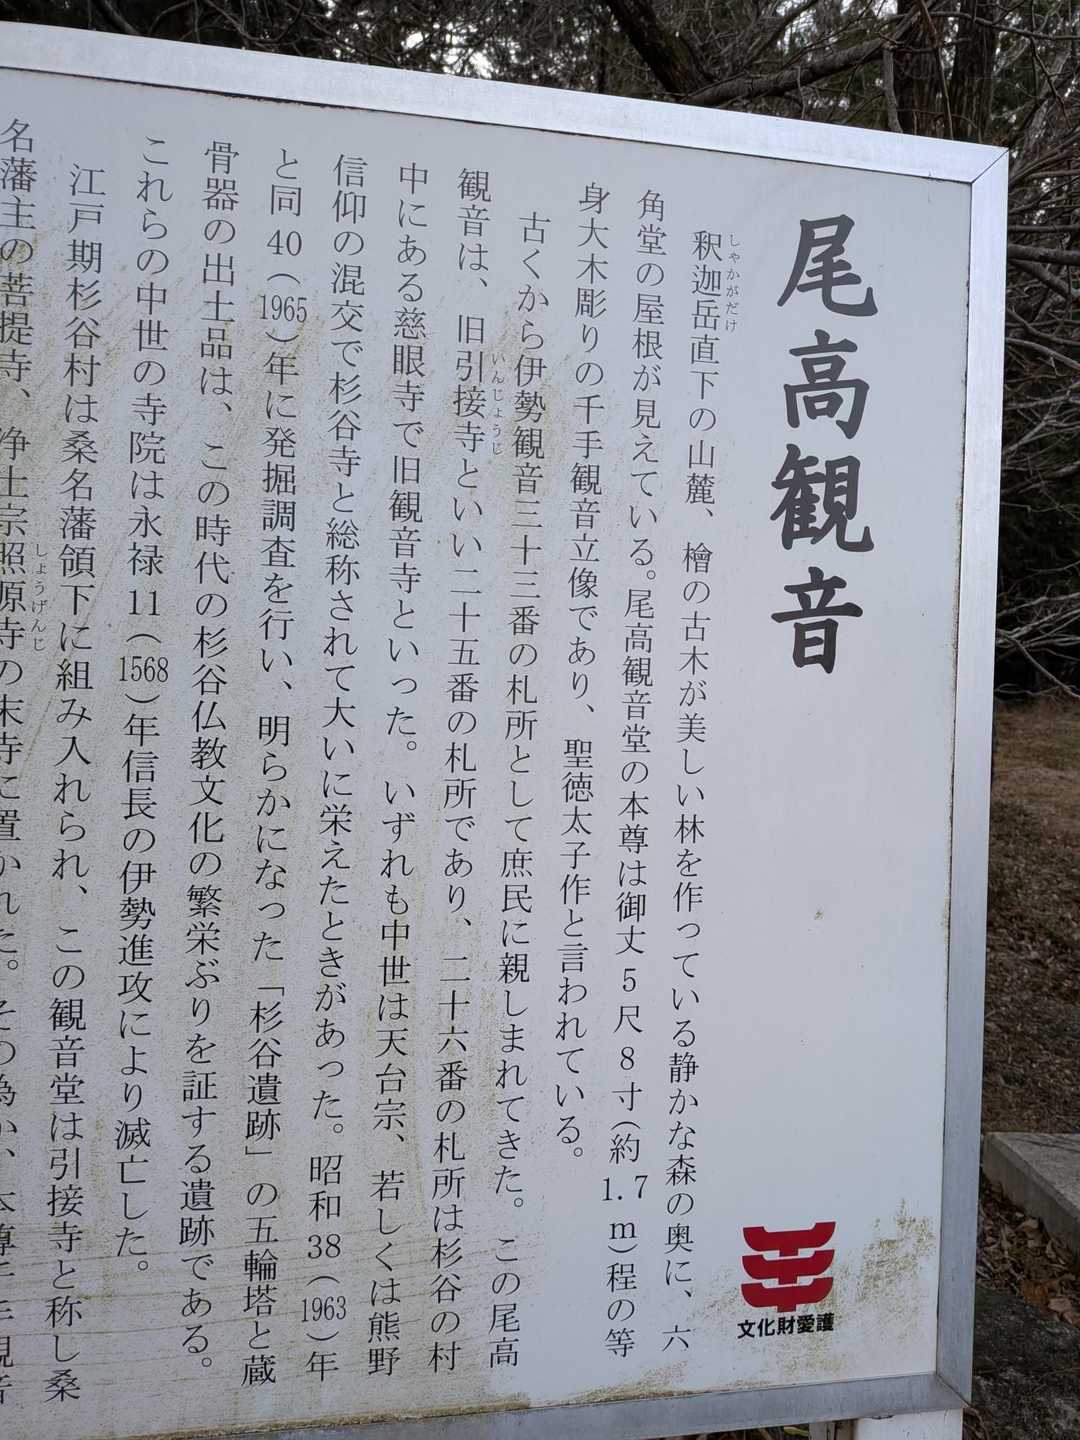 尾高観音
しゃかがだけ
釈迦岳直下の山麓、檜の古木が美しい林を作っている静かな森の奥に、六
角堂の屋根が見えている。尾高観音堂の本尊は御丈5尺8寸(約1.7m)程の等
身大木彫りの千手観音立像であり、聖徳太子作と言われている。
古くから伊勢観音三十三番の札所として庶民に親しまれてきた。この尾高
いんじょうじ
観音は、旧引接寺といい二十五番の札所であり、二十六番の札所は杉谷の村
中にある慈眼寺で旧観音寺といった。いずれも中世は天台宗、若しくは熊野
信仰の混交で杉谷寺と総称されて大いに栄えたときがあった。昭和38(1963)年
と同40(1965)年に発掘調査を行い、明らかになった「杉谷遺跡」の五輪塔と蔵
骨器の出土品は、この時代の杉谷仏教文化の繁栄ぶりを証する遺跡である。
これらの中世の寺院は永禄11(1568)年信長の伊勢進攻により滅亡した。
江戸期杉谷村は桑名藩領下に組み入れられ、この観音堂は引接寺と称し桑
しょうげんじ
名藩主の菩提寺、浄土宗照原寺の末寺に置かれた。その為か、本尊千手観音
文化財愛護